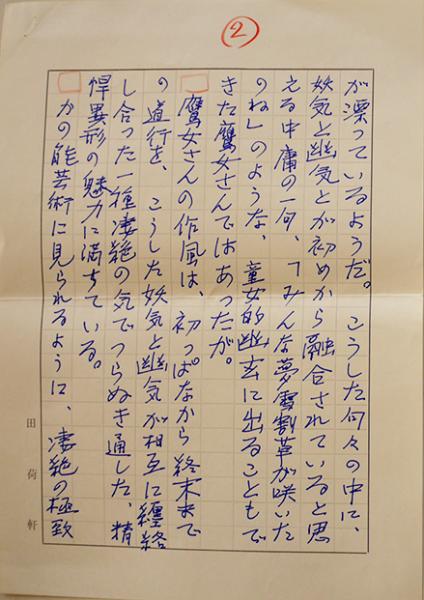 2
が漂っているようだ。こうした句々の中に、
妖気と幽気とが初めから融合されていると思
える中庸の一句、「みんな夢雪割草が咲いた
のね」のような、童女的幽玄に出ることもで
きた鷹女さんではあったが。
鷹女さんの作風は、初っぱなから終末まで
の道行を、こうした妖気と幽気が相互に纏絡
し合った一種凄絶の気でつらぬき通した、精
悍異形の魅力に満ちている。
かの能芸術に見られるように、凄絶の極致
田荷軒